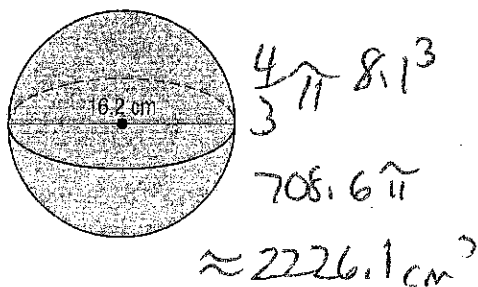 16.2 cm
4/3 π 8.1³
708.6 π
≈ 2226.1 cm³